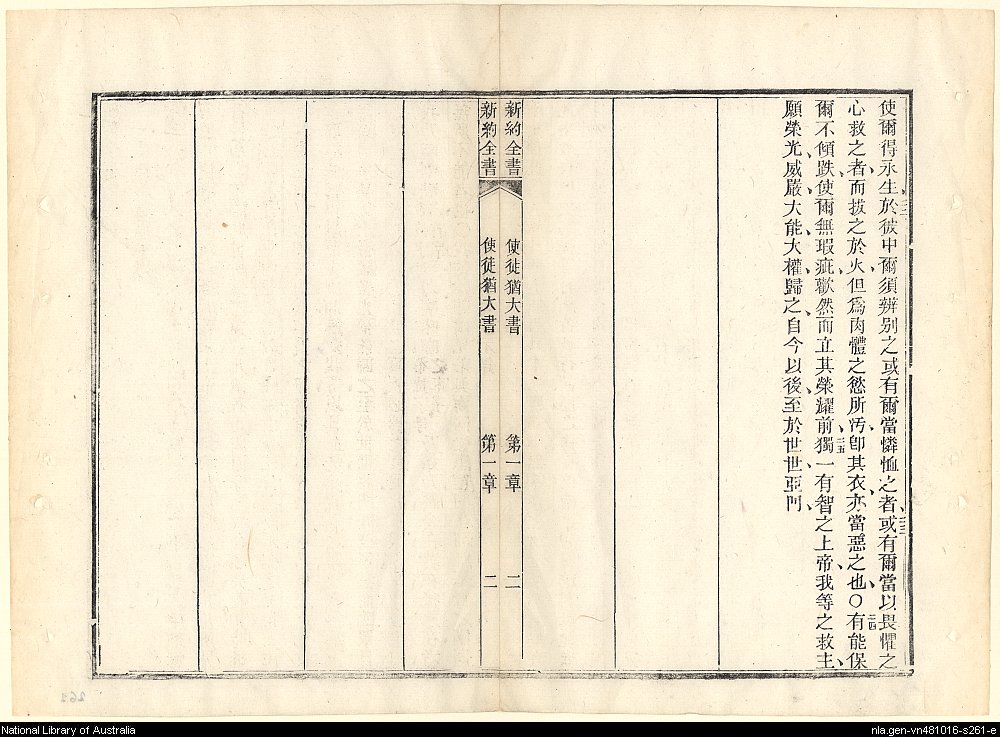 使爾得永生於彼中爾須辨別之或有爾當憐恤之者或有爾當以畏懼之
心救之者而拔之於火但爲肉體之慾所汚卽其衣亦當惡之也〇有能保
爾不傾跌使爾無瑕疵歡然而立其榮耀前獨一有智之上帝我等之救主
願榮光威嚴大能大權歸之自今以後至於世世亞門
新約全書 使徒猶大書 第一章 二
新約全書 使徒猶大書 第一章 二
261
National Library of Australia
nla.gen-vn481016-s261-e